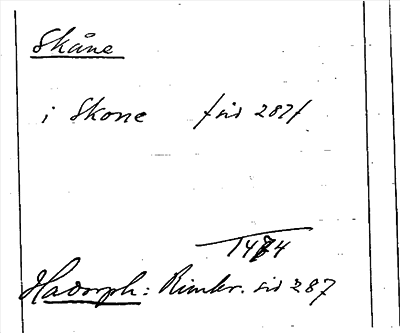 Skåne
i Skone /sid 287/
1474
Hadorph: Rimkr. sid 287